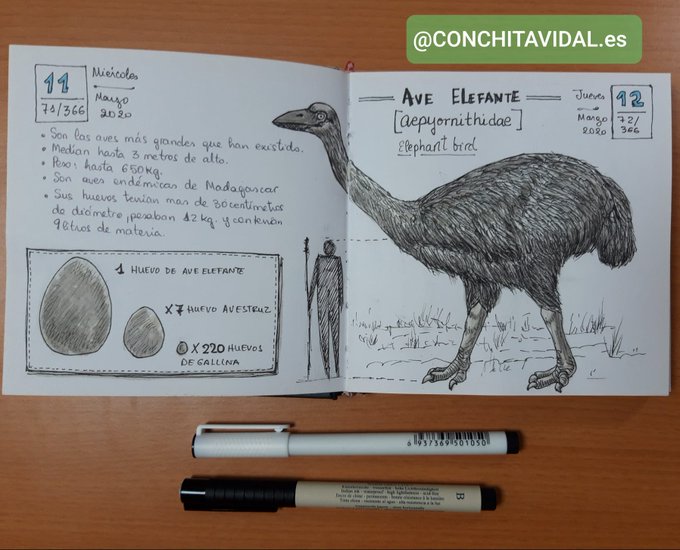 @CONCHITAVIDAL.es
11
71/366
Miércoles
Marzo
2020
• Son las aves más grandes que han existido.
• Medían hasta 3 metros de alto.
• Peso: hasta 650Kg.
• Son aves endémicas de Madagascar
• Sus huevos tenían mas de 30 centímetros
de diámetro, pesaban 12 kg. y contenían
9 litros de materia.
1 HUEVO DE AVE ELEFANTE
X 7 HUEVO AVESTRUZ
X 220 HUEVOS
DE GALLINA
AVE ELEFANTE
[aepyornithidae]
Elephant bird
Jueves
Marzo
2020
12
72/
366
6 937369 501050
B